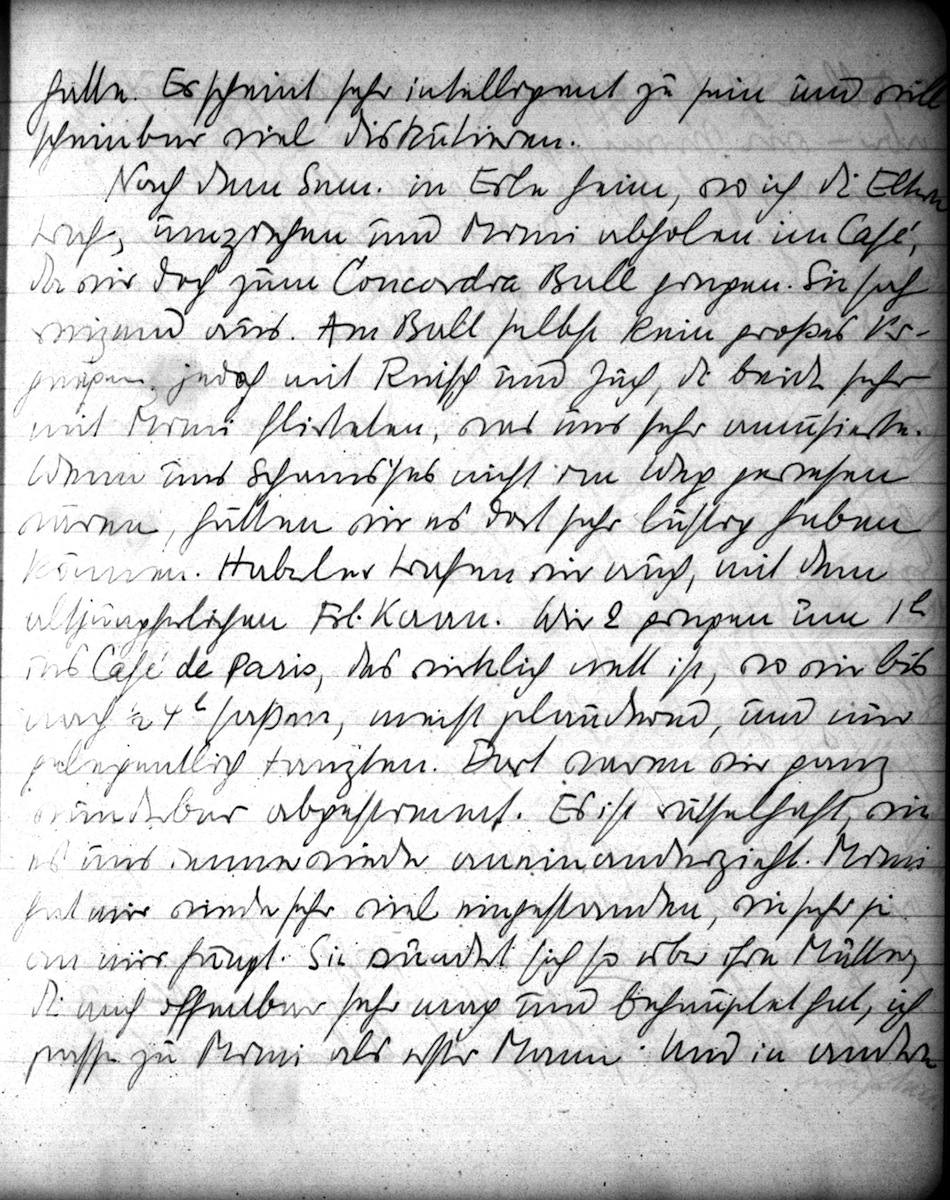 hatte. Er scheint sehr intelligent zu sein und will
scheinbar viel diskutieren.
Nach dem Sem. in Eile heim, wo ich die Eltern
traf, umziehen und Mimi abholen im Café,
da wir doch zum Concordia Ball gingen. Sie sah
reizend aus. Am Ball selbst kein großes Ver-
gnügen, jedoch mit Reisch und Zuch, die beide sehr
mit Mimi flirteten, was uns sehr amusierte.
Wenn uns nicht im Weg gewesen
wären, hätten wir es dort sehr lustig haben
können. Haberler trafen wir auch, mit dem
altjüngferlichen Frl. Kaan. Wir 2 gingen um 1h
ins Café de Paris, das wirklich nett ist, wo wir bis
nach ½ 4h saßen, meist plaudernd, und nur
gelegentlich tanzten. Dort waren wir ganz
wunderbar abgestimmt. Es ist rätselhaft, wie
es uns immer wieder aneinanderzieht. Mimi
hat mir wieder sehr viel eingestanden, wie sehr sie
an mir hängt. Sie wundert sich so über ihre Mutter,
die mich offenbar sehr mag und behauptet hat, ich
passe zu Mimi als erster Mann. Und in andern